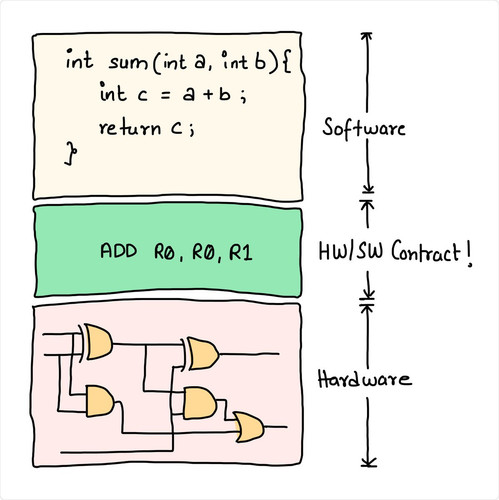 int sum(int a, int b){
int c = a + b ;
return c ;
}
Software
ADD R0, R0, R1
HW/SW Contract!
Hardware